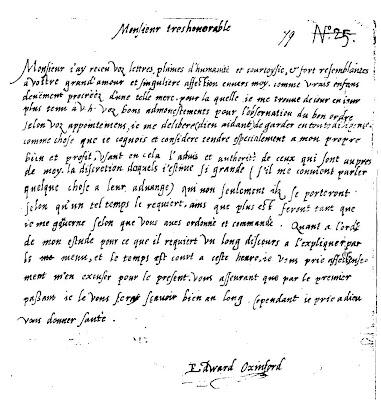 Monsieur treshonorable
19 No. 25.
Monsieur i'ay receu voz lettres, plaines d'humanité et courtoysie, & fort resemblantes
a vostre grand'amour et singuliere affection envers moy. comme vrais enfans
deuëment procreéz d'une telle mere. pour la quelle ie me trouue de iour en iour
plus tenu a v.h. voz bons admonestements pour l'obseruation du bon ordre
selon voz appointemens, ie me delibere (dieu aidant) de garder en toute
comme chose que ie cognois et considere tendre especialement a mon propre
bien et profit, vsant en cela l'aduis et authorité de ceux qui sont aupres
de moy. la discretion desquels i'estime si grande (s'il me conuient parler
quelque chose a leur aduange) qui non seulement ilz se porteront
selon qu'un tel temps le requiert, ains que plus est feront tant que
ie me gouuerne selon que vous aues ordonné et commandé. Quant a l'ordre
de mon estude pour ce que il requiert vn long discours a l'expliquer par
le menu, et le temps est court a ceste heure, ie vous prie affectueuse-
ment m'en excuser pour le present. vous asseurant que par le premier
passant ie le vous feray scauoir bien au long. Cependant ie prie a dieu
vous donner santé.
Edward Oxinford